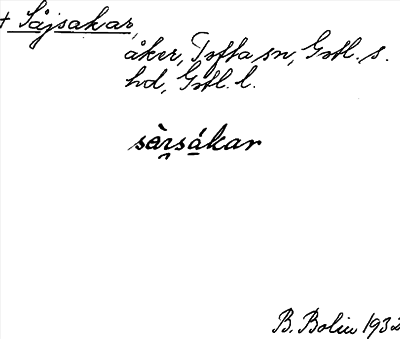 + Såjsakar,
åker, Tofta sn, Gotl. s.
hd, Gotl. l.
sàrsákar
B. Bolin 1932